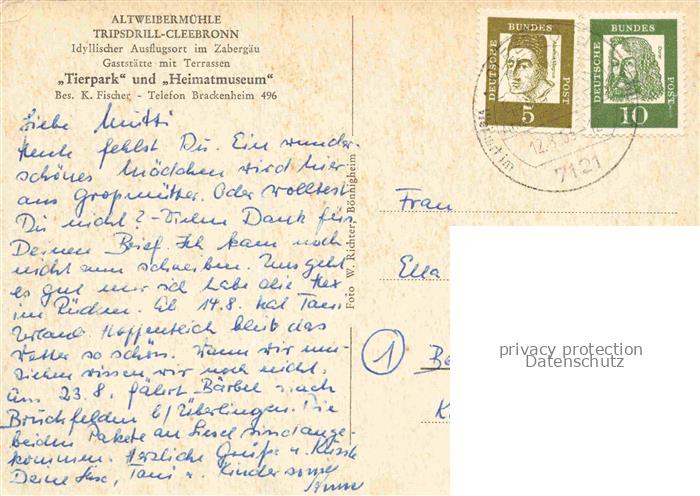 ALTWEIBERMÜHLE
TRIPSDRILL-CLEEBRONN
Idyllischer Ausflugsort im Zabergäu
Gaststätte mit Terrassen
„Tierpark" und „Heimatmuseum"
Bes. K. Fischer - Telefon Brackenheim 496
Liebe Mutti
Heute fehlst Du. Ein wunder-
schönes Mädchen wird hier
aus Großmütter. Oder wolltest
Du nicht? - Vielen Dank für
Deinen Brief. Ich kam noch
nicht zum schreiben. Uns geht
es gut nur ich habe die Hex
im Rücken. Ab 14.8. hat Tani
Urlaub. Hoffentlich bleibt das
Wetter so schön. Wann wir um-
ziehen wissen wir noch nicht.
Am 23.8. fährt Bärbel nach
Bruckfelden b/Überlingen. Die
beiden Pakete an Liesel sind ange-
kommen. Herzliche Grüße u. Küsse
Deine Tani u. Kinder
Foto W. Richter, Bönnigheim
DEUTSCHE
BUNDES
POST
5
DEUTSCHE
BUNDES
POST
Dürer
10
7121
Frau
Ella
1
Be
K
privacy protection
Datenschutz